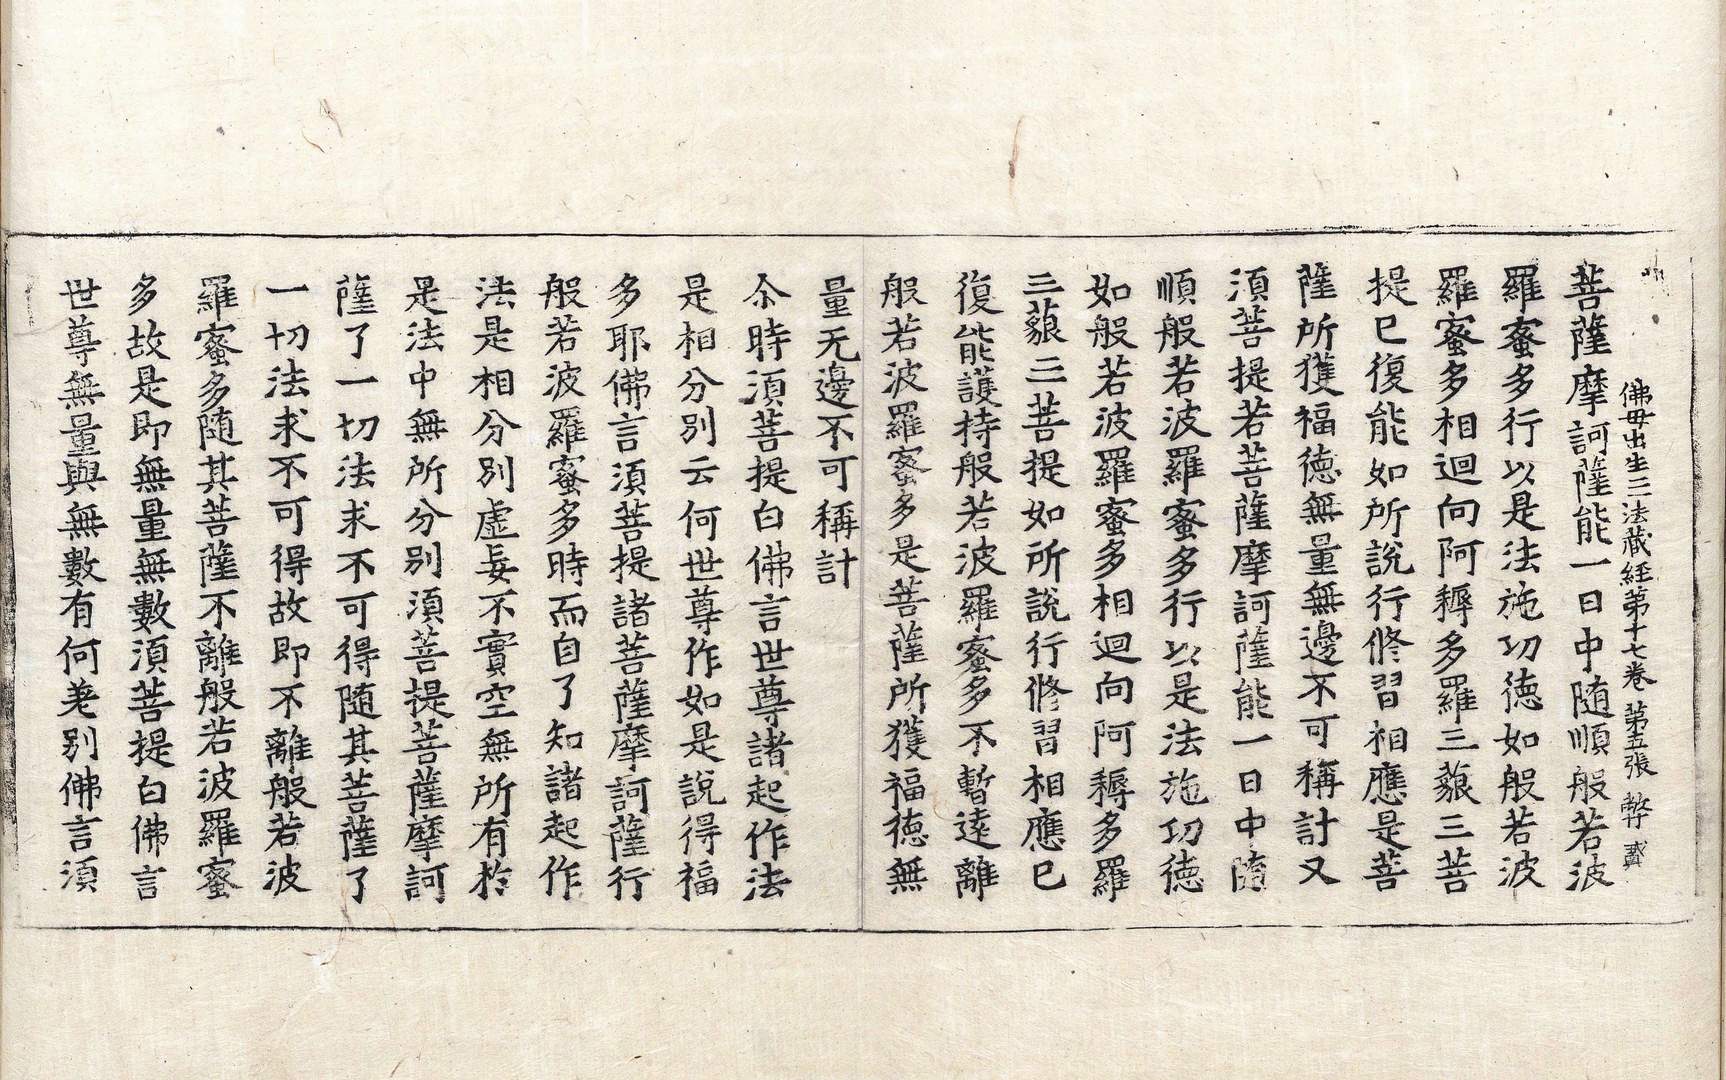 佛母出生三法藏經第十七卷 第五張 弊
菩薩摩訶薩能一日中随順般若波
羅蜜多行以是法施功徳如般若波
羅蜜多相迴向阿耨多羅三藐三菩
提已復能如所說行修習相應是菩
薩所獲福徳無量無邊不可稱計又
須菩提若菩薩摩訶薩能一日中随
順般若波羅蜜多行以是法施功徳
如般若波羅蜜多相迴向阿耨多羅
三藐三菩提如所說行修習相應已
復能護持般若波羅蜜多不暫遠離
般若波羅蜜多是菩薩所獲福徳無
量无邊不可稱計
尒時須菩提白佛言世尊諸起作法
是相分別云何世尊作如是說得福
多耶佛言須菩提諸菩薩摩訶薩行
般若波羅蜜多時而自了知諸起作
法是相分別虛妄不實空無所有於
是法中無所分別須菩提菩薩摩訶
薩了一切法求不可得随其菩薩了
一切法求不可得故即不離般若波
羅蜜多随其菩薩不離般若波羅蜜
多故是即無量無數須菩提白佛言
世尊無量與無數有何差别佛言須